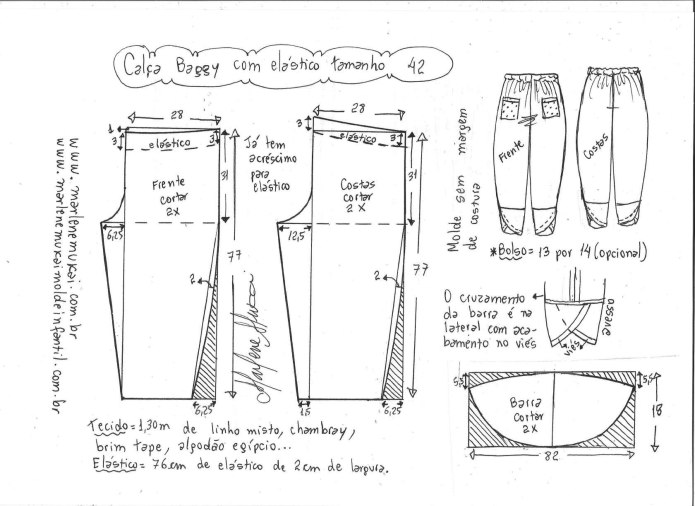 Calça Baggy com elástico tamanho 42
www.marlenemukai.com.br
www.marlenemukaimoldeinfantil.com.br
28
1
3
elástico
3
Frente
cortar
2X
31
6,25
77
2
6,25
Já tem
acréscimo
para
elástico
Marlene Mukai
28
3
elástico
3
Costas
cortar
2X
31
12,5
77
2
1,5
6,25
Molde sem margem
de costura
Frente
Costas
*Bolso= 13 por 14 (opcional)
O cruzamento
da barra é na
lateral com aca-
bamento no viés
assave
viés
5,5
5,5
Barra
Cortar
2X
18
82
Tecido= 1,30m de linho misto, chambray,
brim tape, algodão egípcio...
Elástico= 76cm de elástico de 2cm de largura.